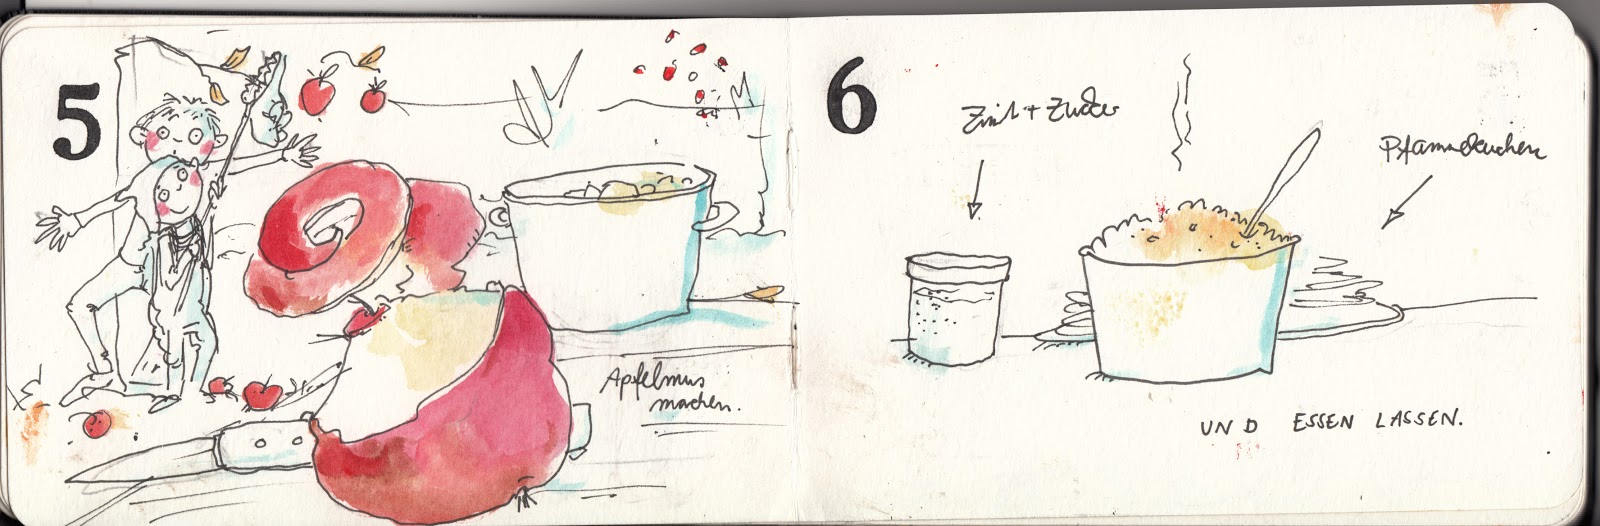 5
Apfelmus
machen.
6
Zimt + Zucker
Pfannekuchen
UND ESSEN LASSEN.